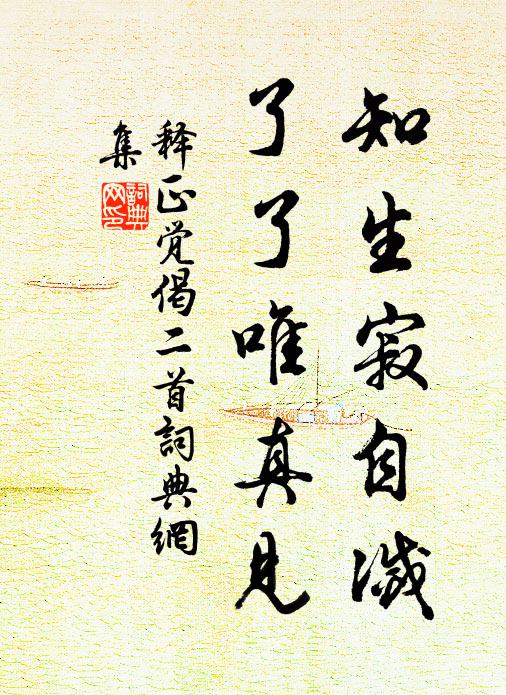 知生寂自滅
了了唯真見
释正觉偈二首詞典網
集
詞典
网印